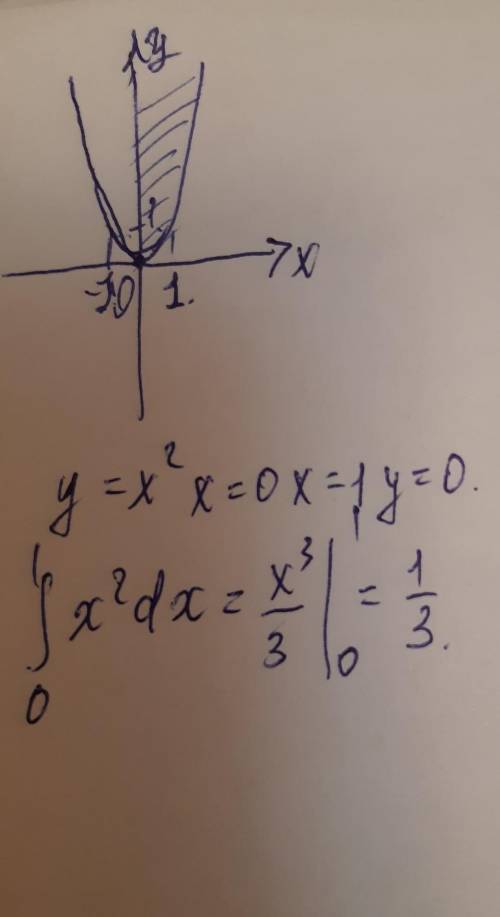 y
1
x
-1 0 1.
y = x² x = 0 x = 1 y = 0.
∫₀¹ x² dx = x³/3 |₀¹ = 1/3.